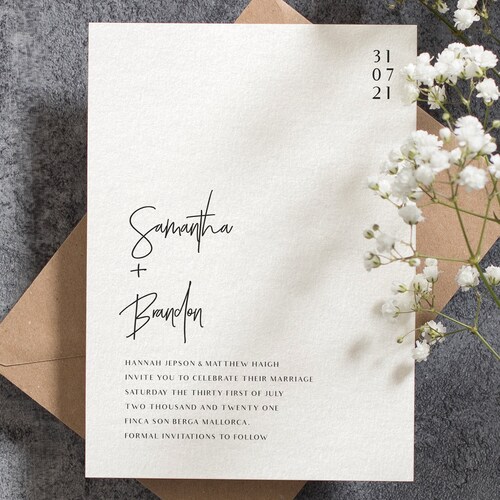 31
07
21
Samantha
+
Brandon
HANNAH JEPSON & MATTHEW HAIGH
INVITE YOU TO CELEBRATE THEIR MARRIAGE
SATURDAY THE THIRTY FIRST OF JULY
TWO THOUSAND AND TWENTY ONE
FINCA SON BERGA MALLORCA.
FORMAL INVITATIONS TO FOLLOW